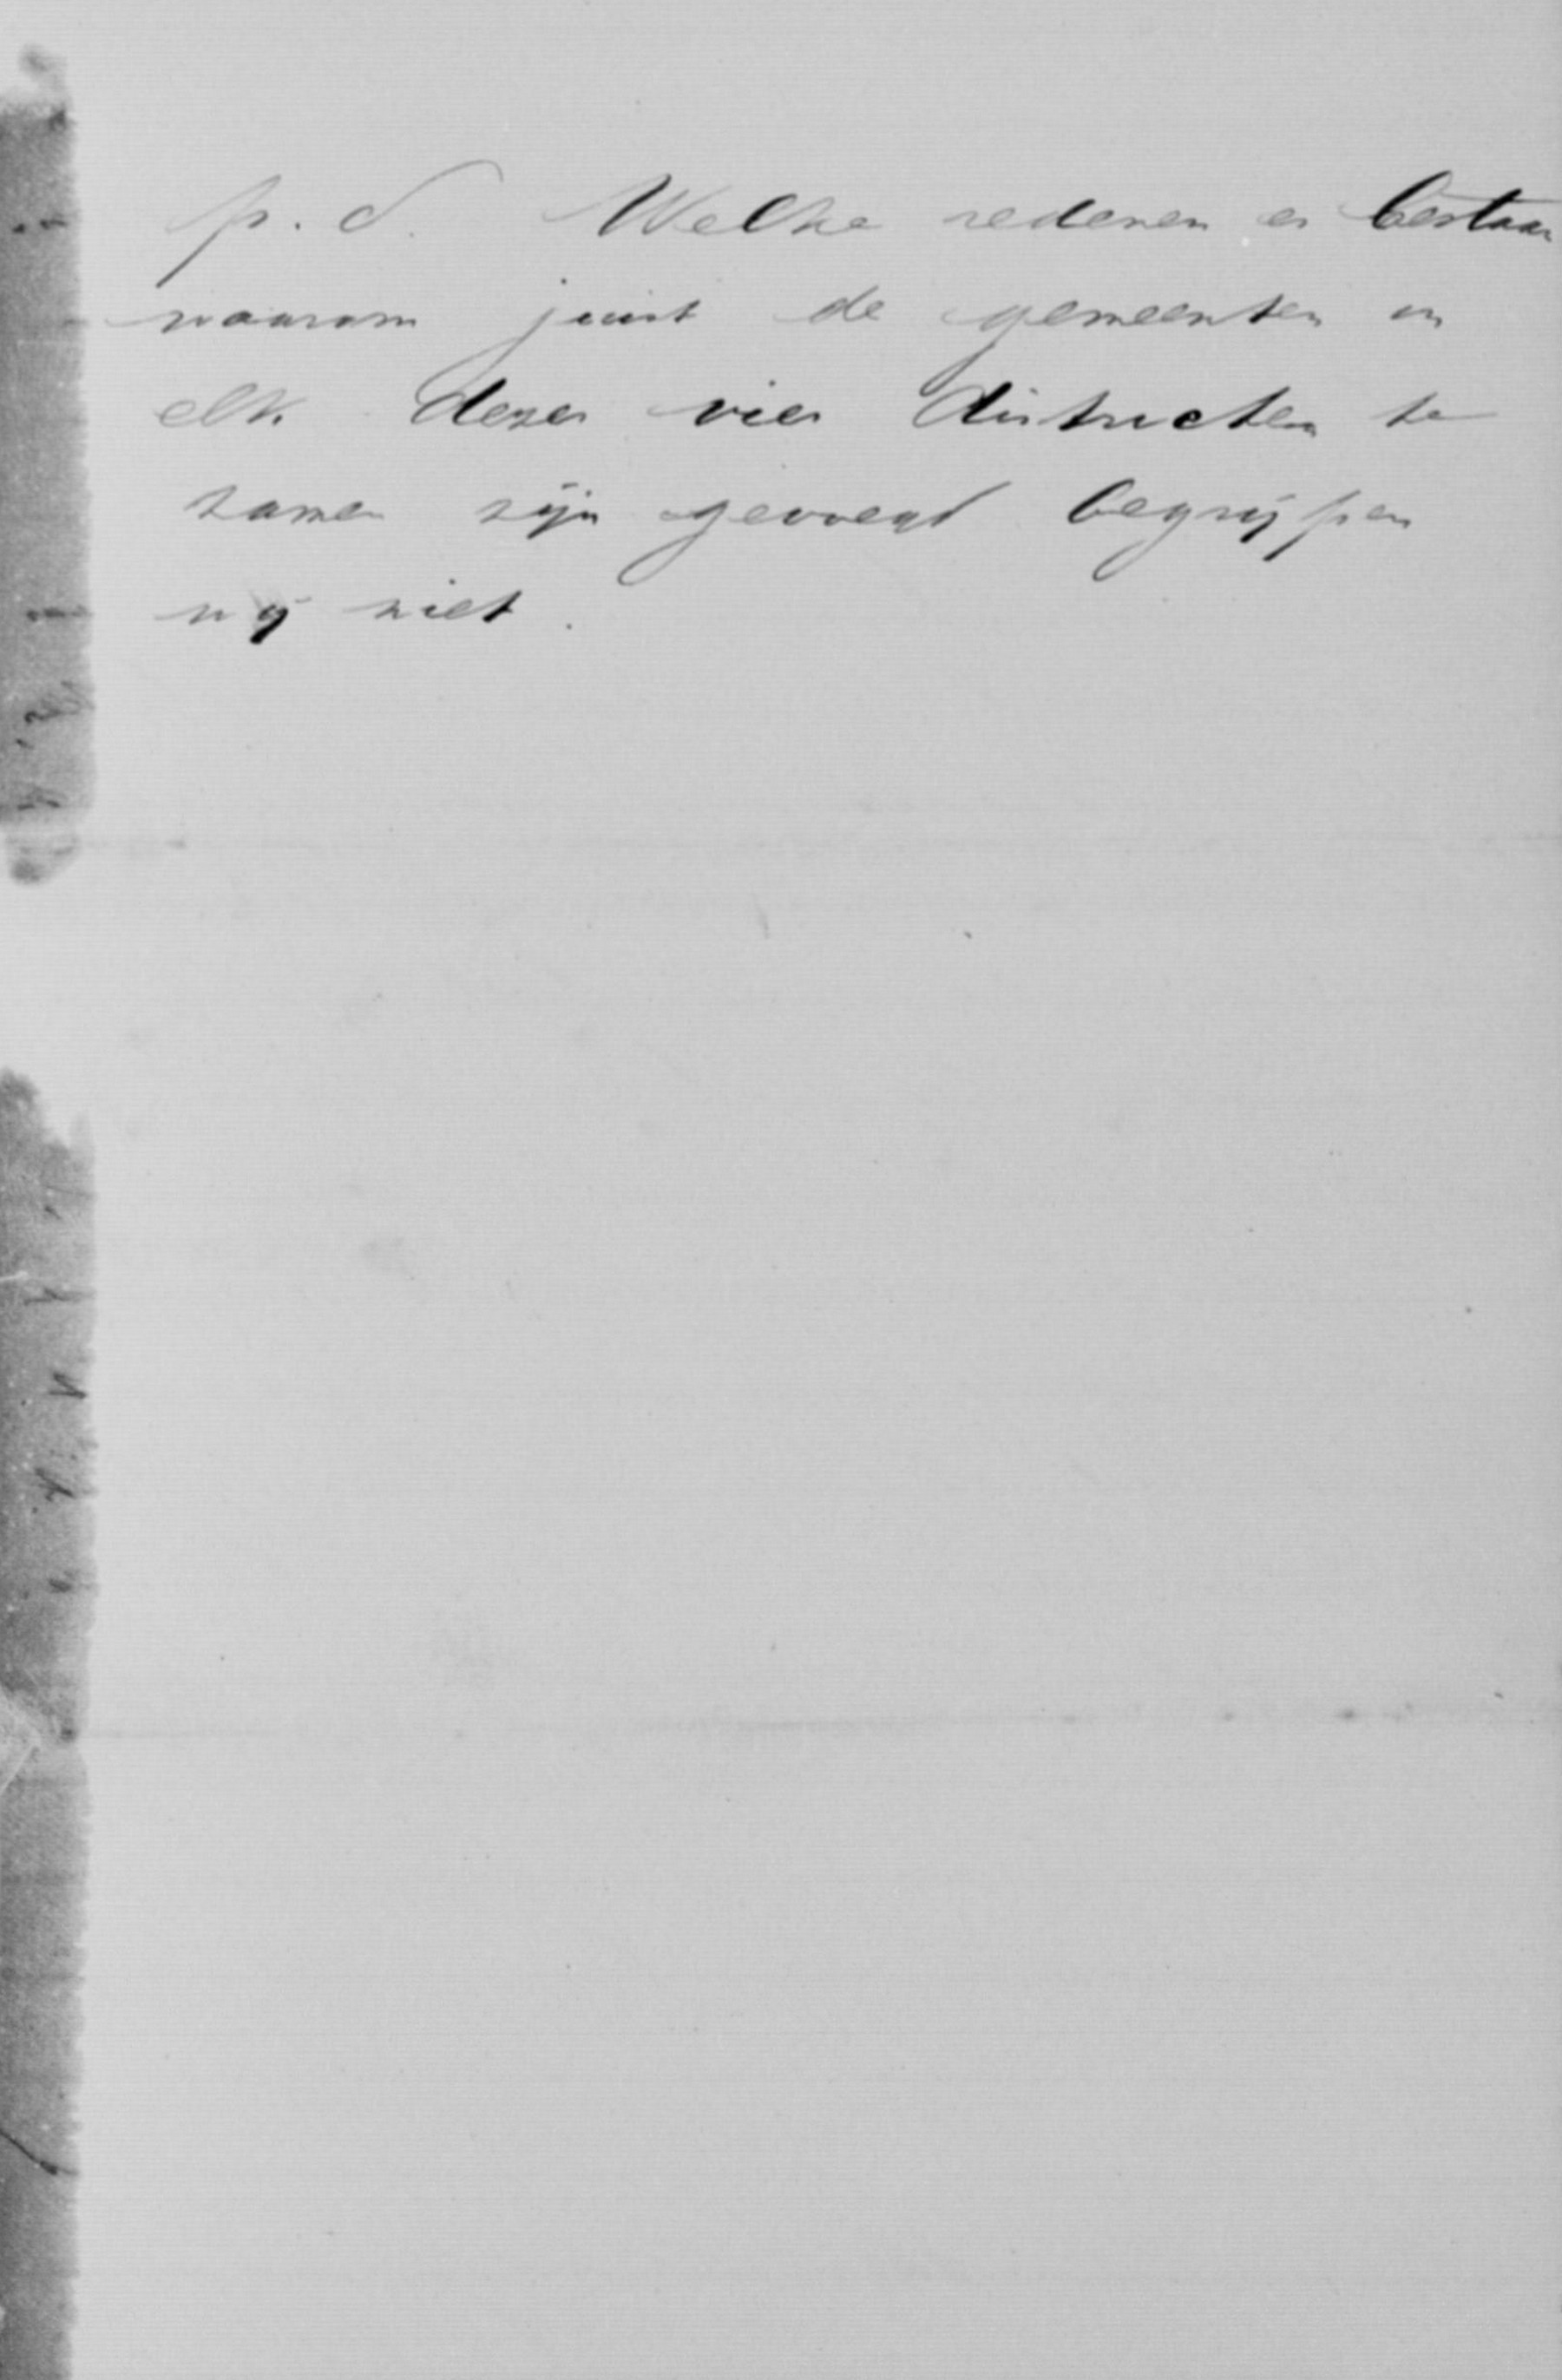 p. S. Welke redenen er bestaan
waarom juist de gemeenten in
elk dezer vier districten te
zamen zijn gevoegd begrijpen
wij niet.